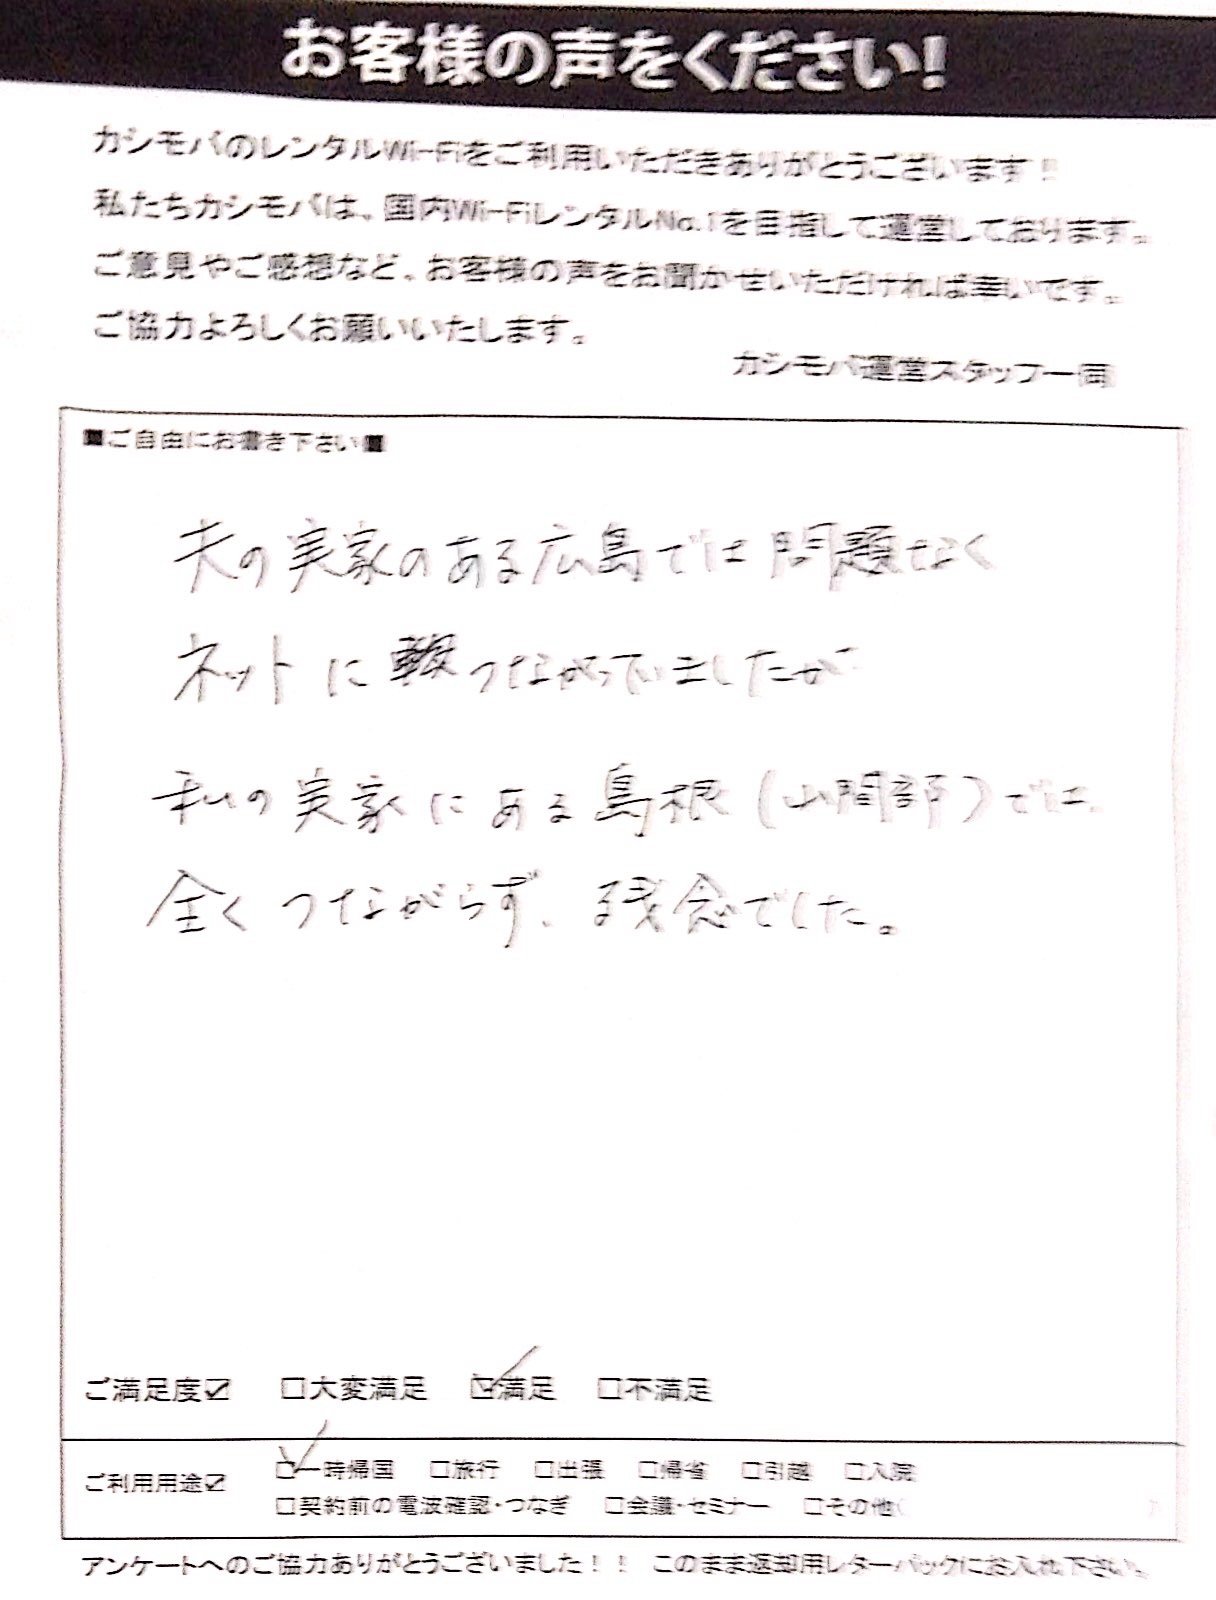 お客様の声をください!
カシモバのレンタルWi-Fiをご利用いただきありがとうございます!!
私たちカシモバは、国内Wi-FiレンタルNo.1を目指して運営しております。
ご意見やご感想など、お客様の声をお聞かせいただければ幸いです。
ご協力よろしくお願いいたします。
カシモバ運営スタッフ一同
■ご自由にお書き下さい■
夫の実家のある広島では問題なく
ネットに つながっていましたが
私の実家にある島根(山間部)では、
全くつながらず、残念でした。
ご満足度☑ □大変満足 ☑満足 □不満足
ご利用用途☑ ☑一時帰国 □旅行 □出張 □帰省 □引越 □入院
□契約前の電波確認・つなぎ □会議・セミナー □その他( )
アンケートへのご協力ありがとうございました!! このまま返却用レターパックにお入れ下さい。